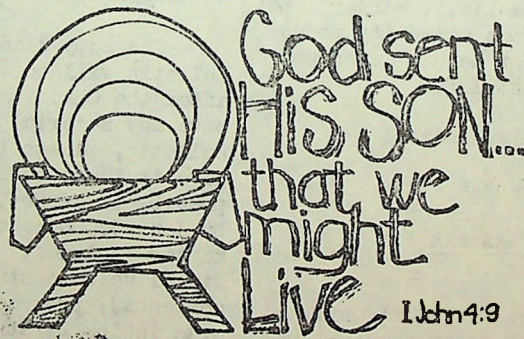 God sent
HiS SON...
that we
might
Live
I John 4:9